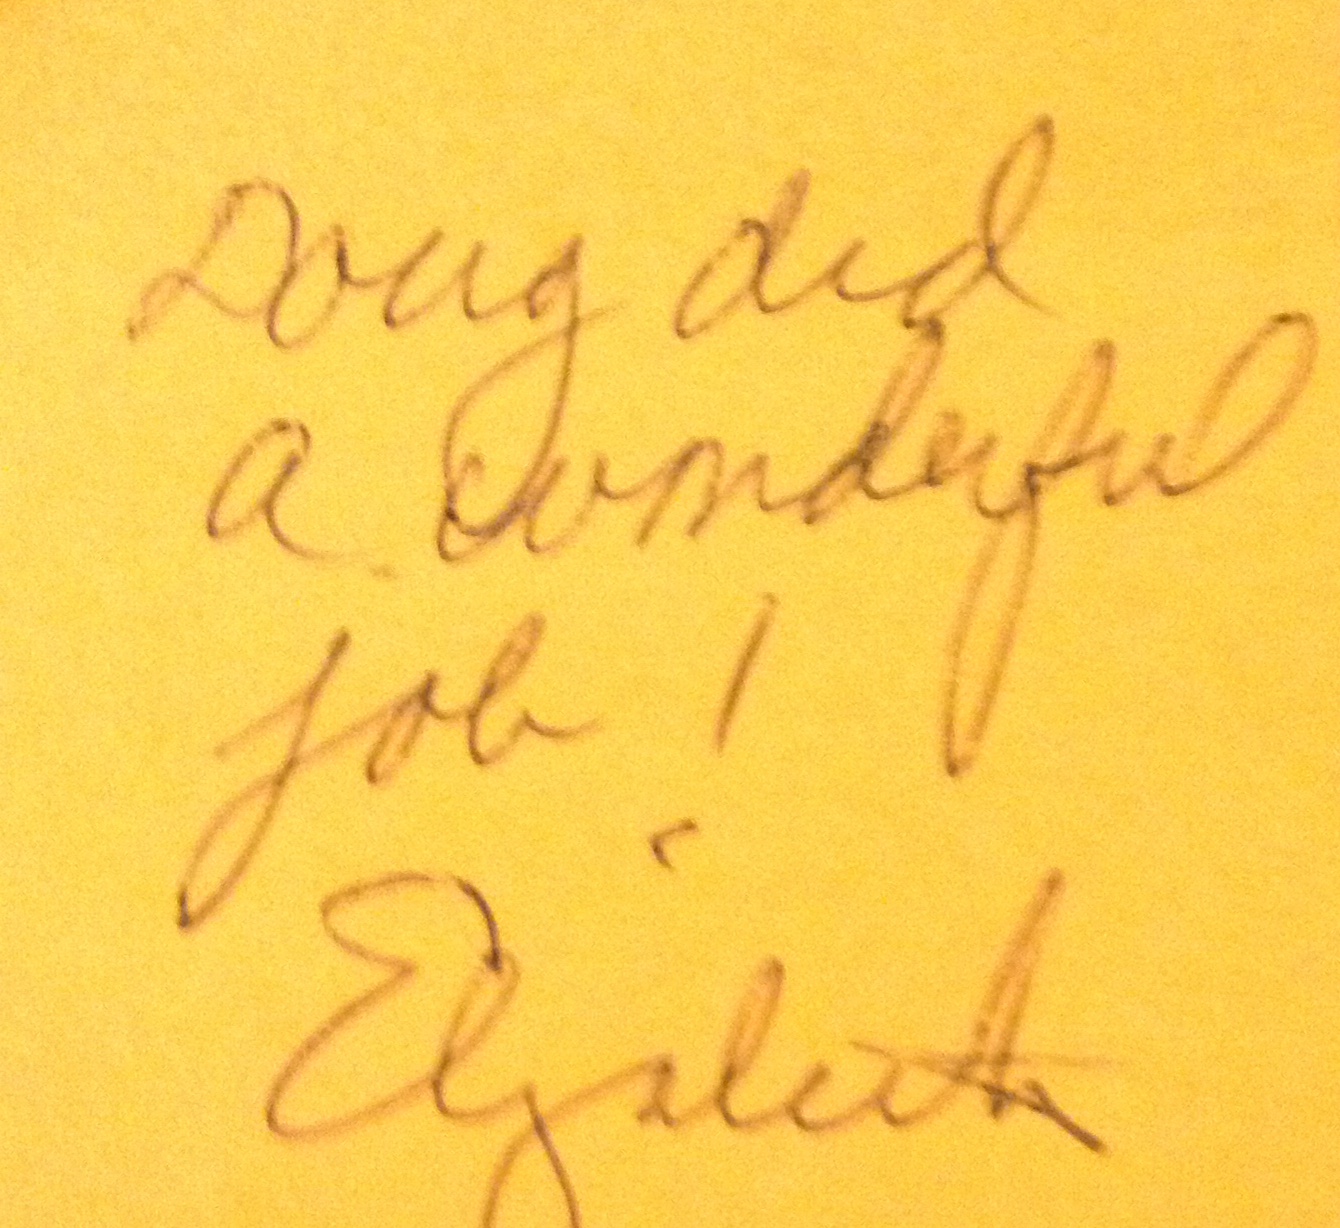 Doug did
a wonderful
job!
Elizabeth